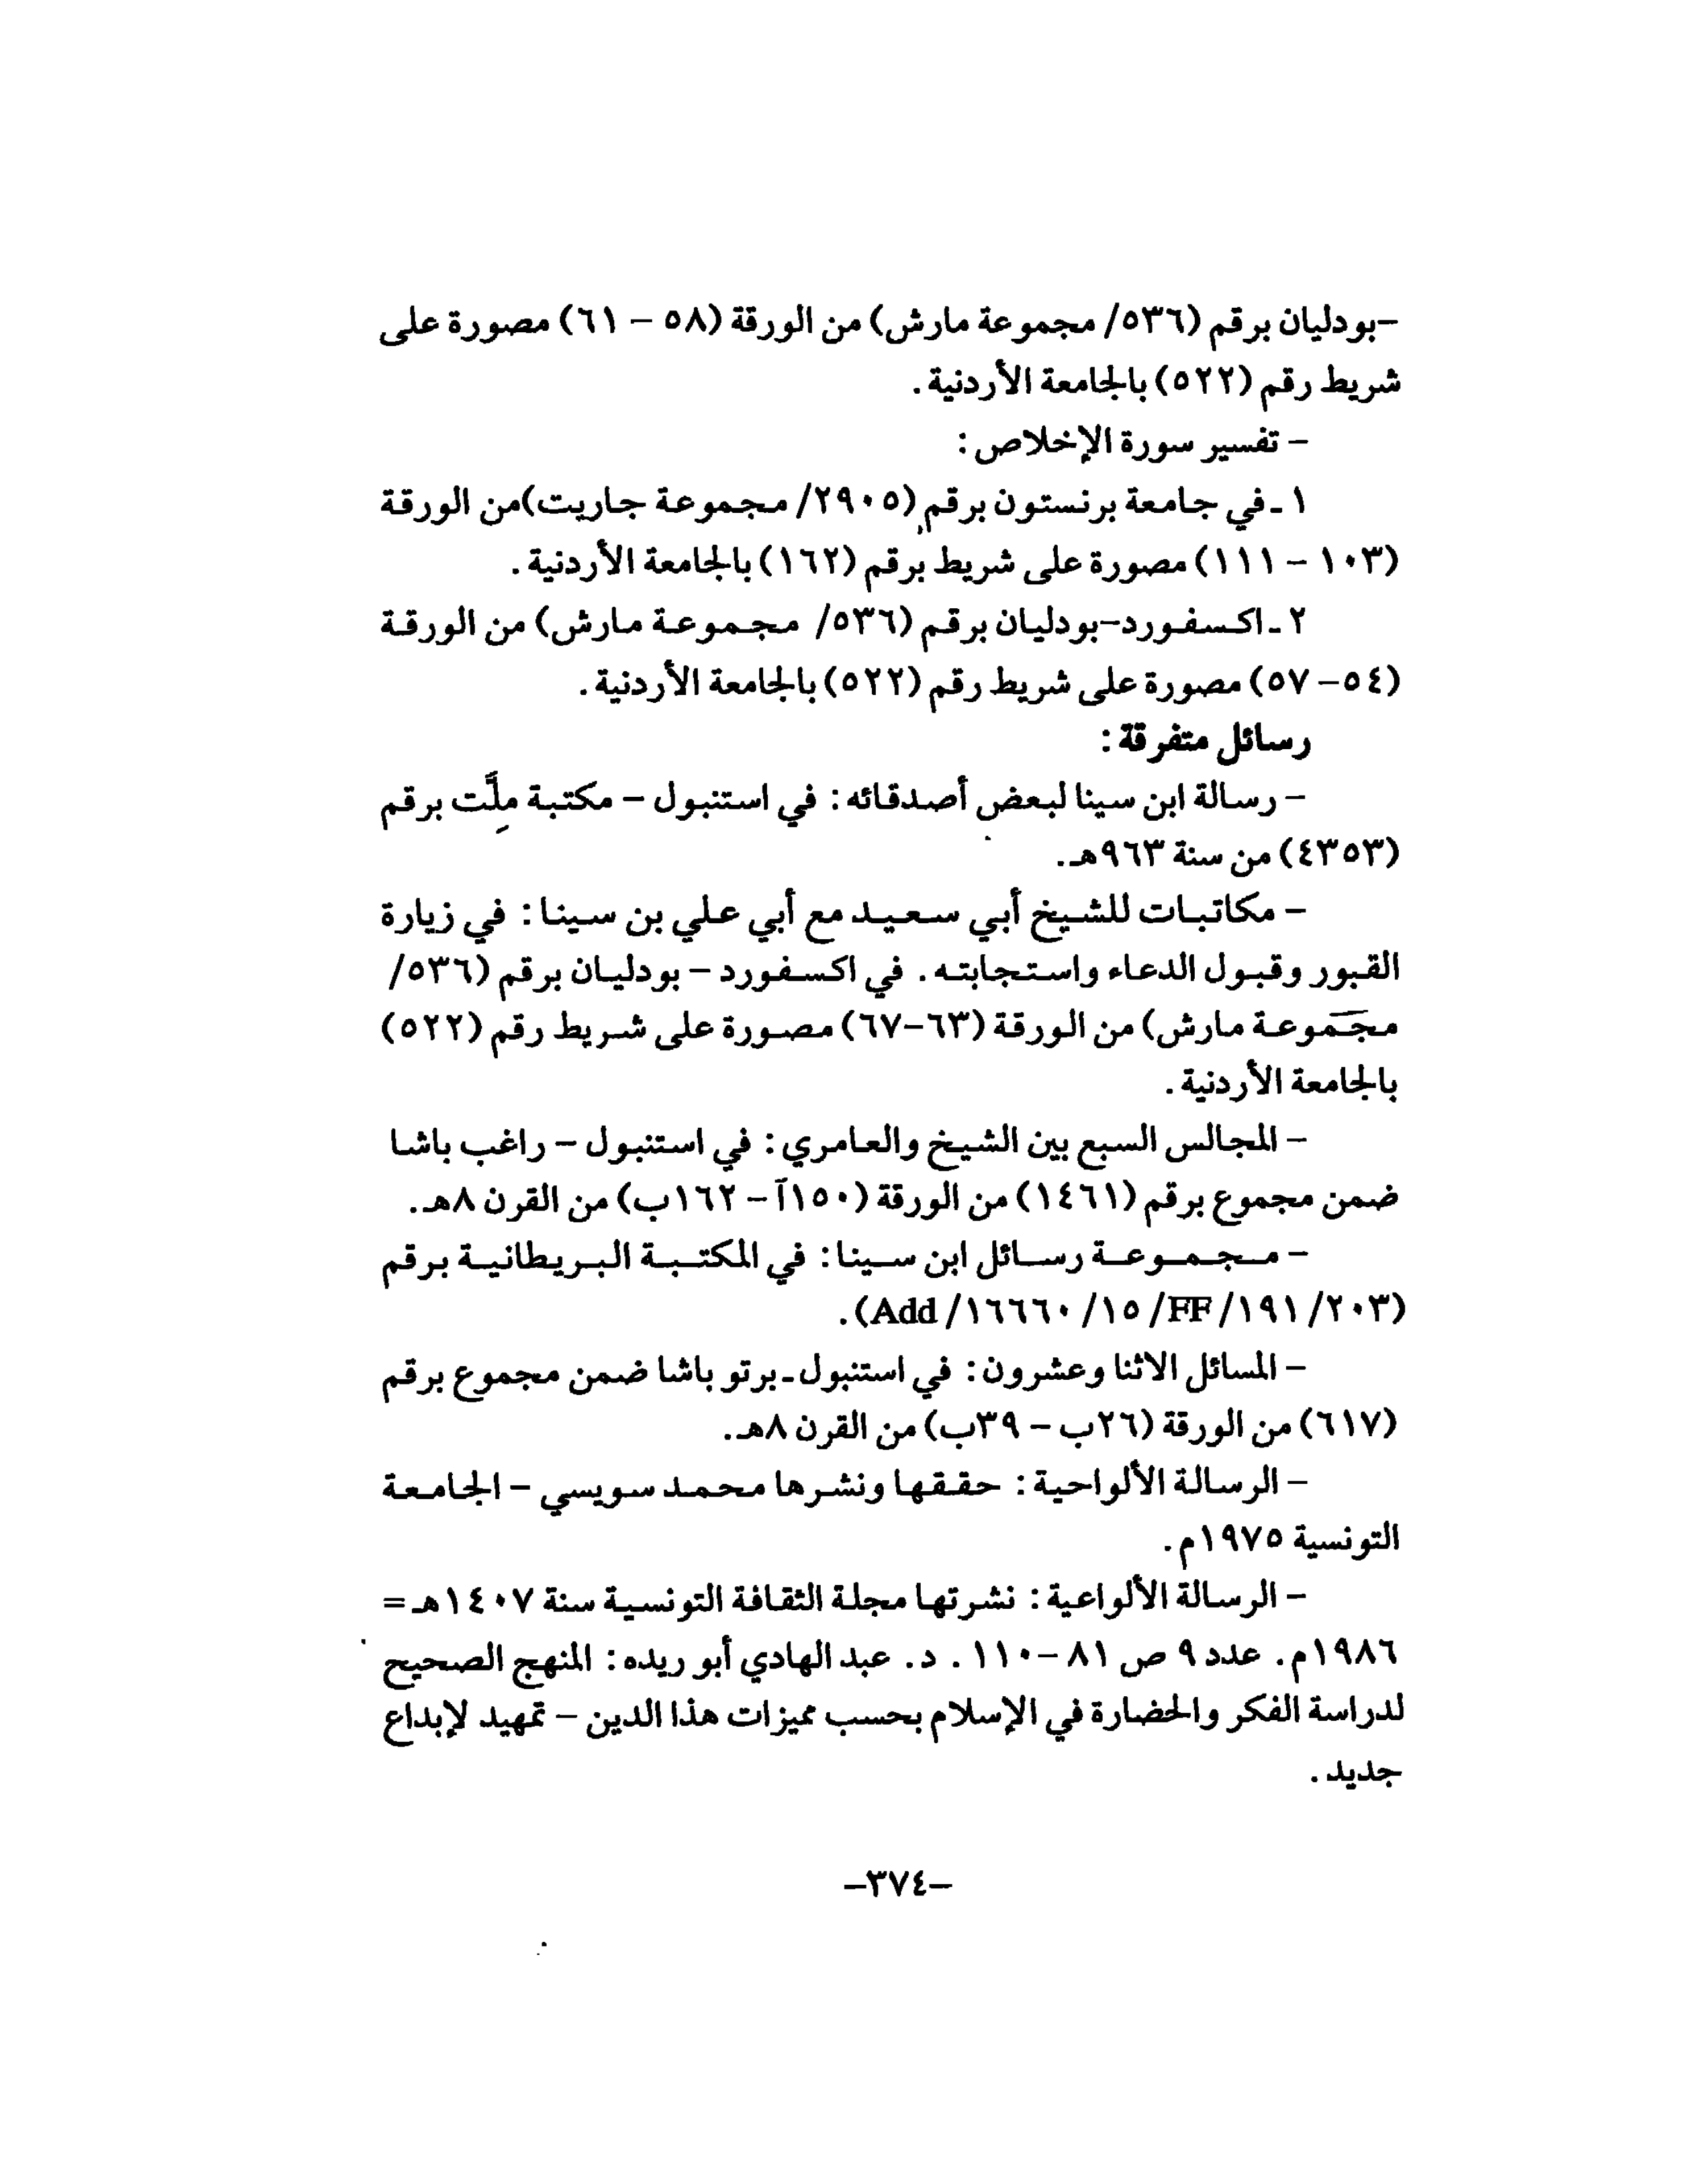 -بودليان برقم (٥٣٦/ مجموعة مارش) من الورقة (٥٨ – ٦١) مصورة على
شريط رقم (٥٢٢) بالجامعة الأردنية.
– تفسير سورة الإخلاص:
١ ـ في جامعة برنستون برقم (٢٩٠٥/ مجموعة جاريت)من الورقة
(١٠٣ – ١١١) مصورة على شريط برقم (١٦٢) بالجامعة الأردنية.
٢ ـ اكسفورد-بودليان برقم (٥٣٦/ مجموعة مارش) من الورقة
(٥٤– ٥٧) مصورة على شريط رقم (٥٢٢) بالجامعة الأردنية.
رسائل متفرقة:
– رسالة ابن سينا لبعض أصدقائه: في استنبول – مكتبة ملَّت برقم
(٤٣٥٣) من سنة ٩٦٣هـ.
– مكاتبات للشيخ أبي سعيد مع أبي علي بن سينا: في زيارة
القبور وقبول الدعاء واستجابته. في اكسفورد – بودليان برقم (٥٣٦/
مجموعة مارش) من الورقة (٦٣–٦٧) مصورة على شريط رقم (٥٢٢)
بالجامعة الأردنية.
– المجالس السبع بين الشيخ والعامري: في استنبول – راغب باشا
ضمن مجموع برقم (١٤٦١) من الورقة (١٥٠آ – ١٦٢ب) من القرن ٨هـ.
– مجموعة رسائل ابن سينا: في المكتبة البريطانية برقم
(٢٠٣/ ١٩١/ FF/ ١٥/ ١٦٦٦٠/ Add).
– المسائل الاثنا وعشرون: في استنبول ـ برتو باشا ضمن مجموع برقم
(٦١٧) من الورقة (٢٦ب – ٣٩ب) من القرن ٨هـ.
– الرسالة الألواحية: حققها ونشرها محمد سويسي – الجامعة
التونسية ١٩٧٥م.
– الرسالة الألواعية: نشرتها مجلة الثقافة التونسية سنة ١٤٠٧هـ =
١٩٨٦م. عدد ٩ ص ٨١ – ١١٠. د. عبد الهادي أبو ريده: المنهج الصحيح
لدراسة الفكر والحضارة في الإسلام بحسب مميزات هذا الدين – تمهيد لإبداع
جديد.
–٣٧٤–